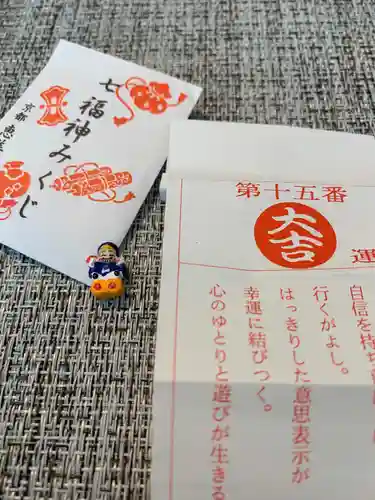 七福神みくじ
京都 恵
第十五番
大吉
運
自信を持ち
行くがよし。
はっきりした意思表示が
幸運に結びつく。
心のゆとりと遊びが生きる